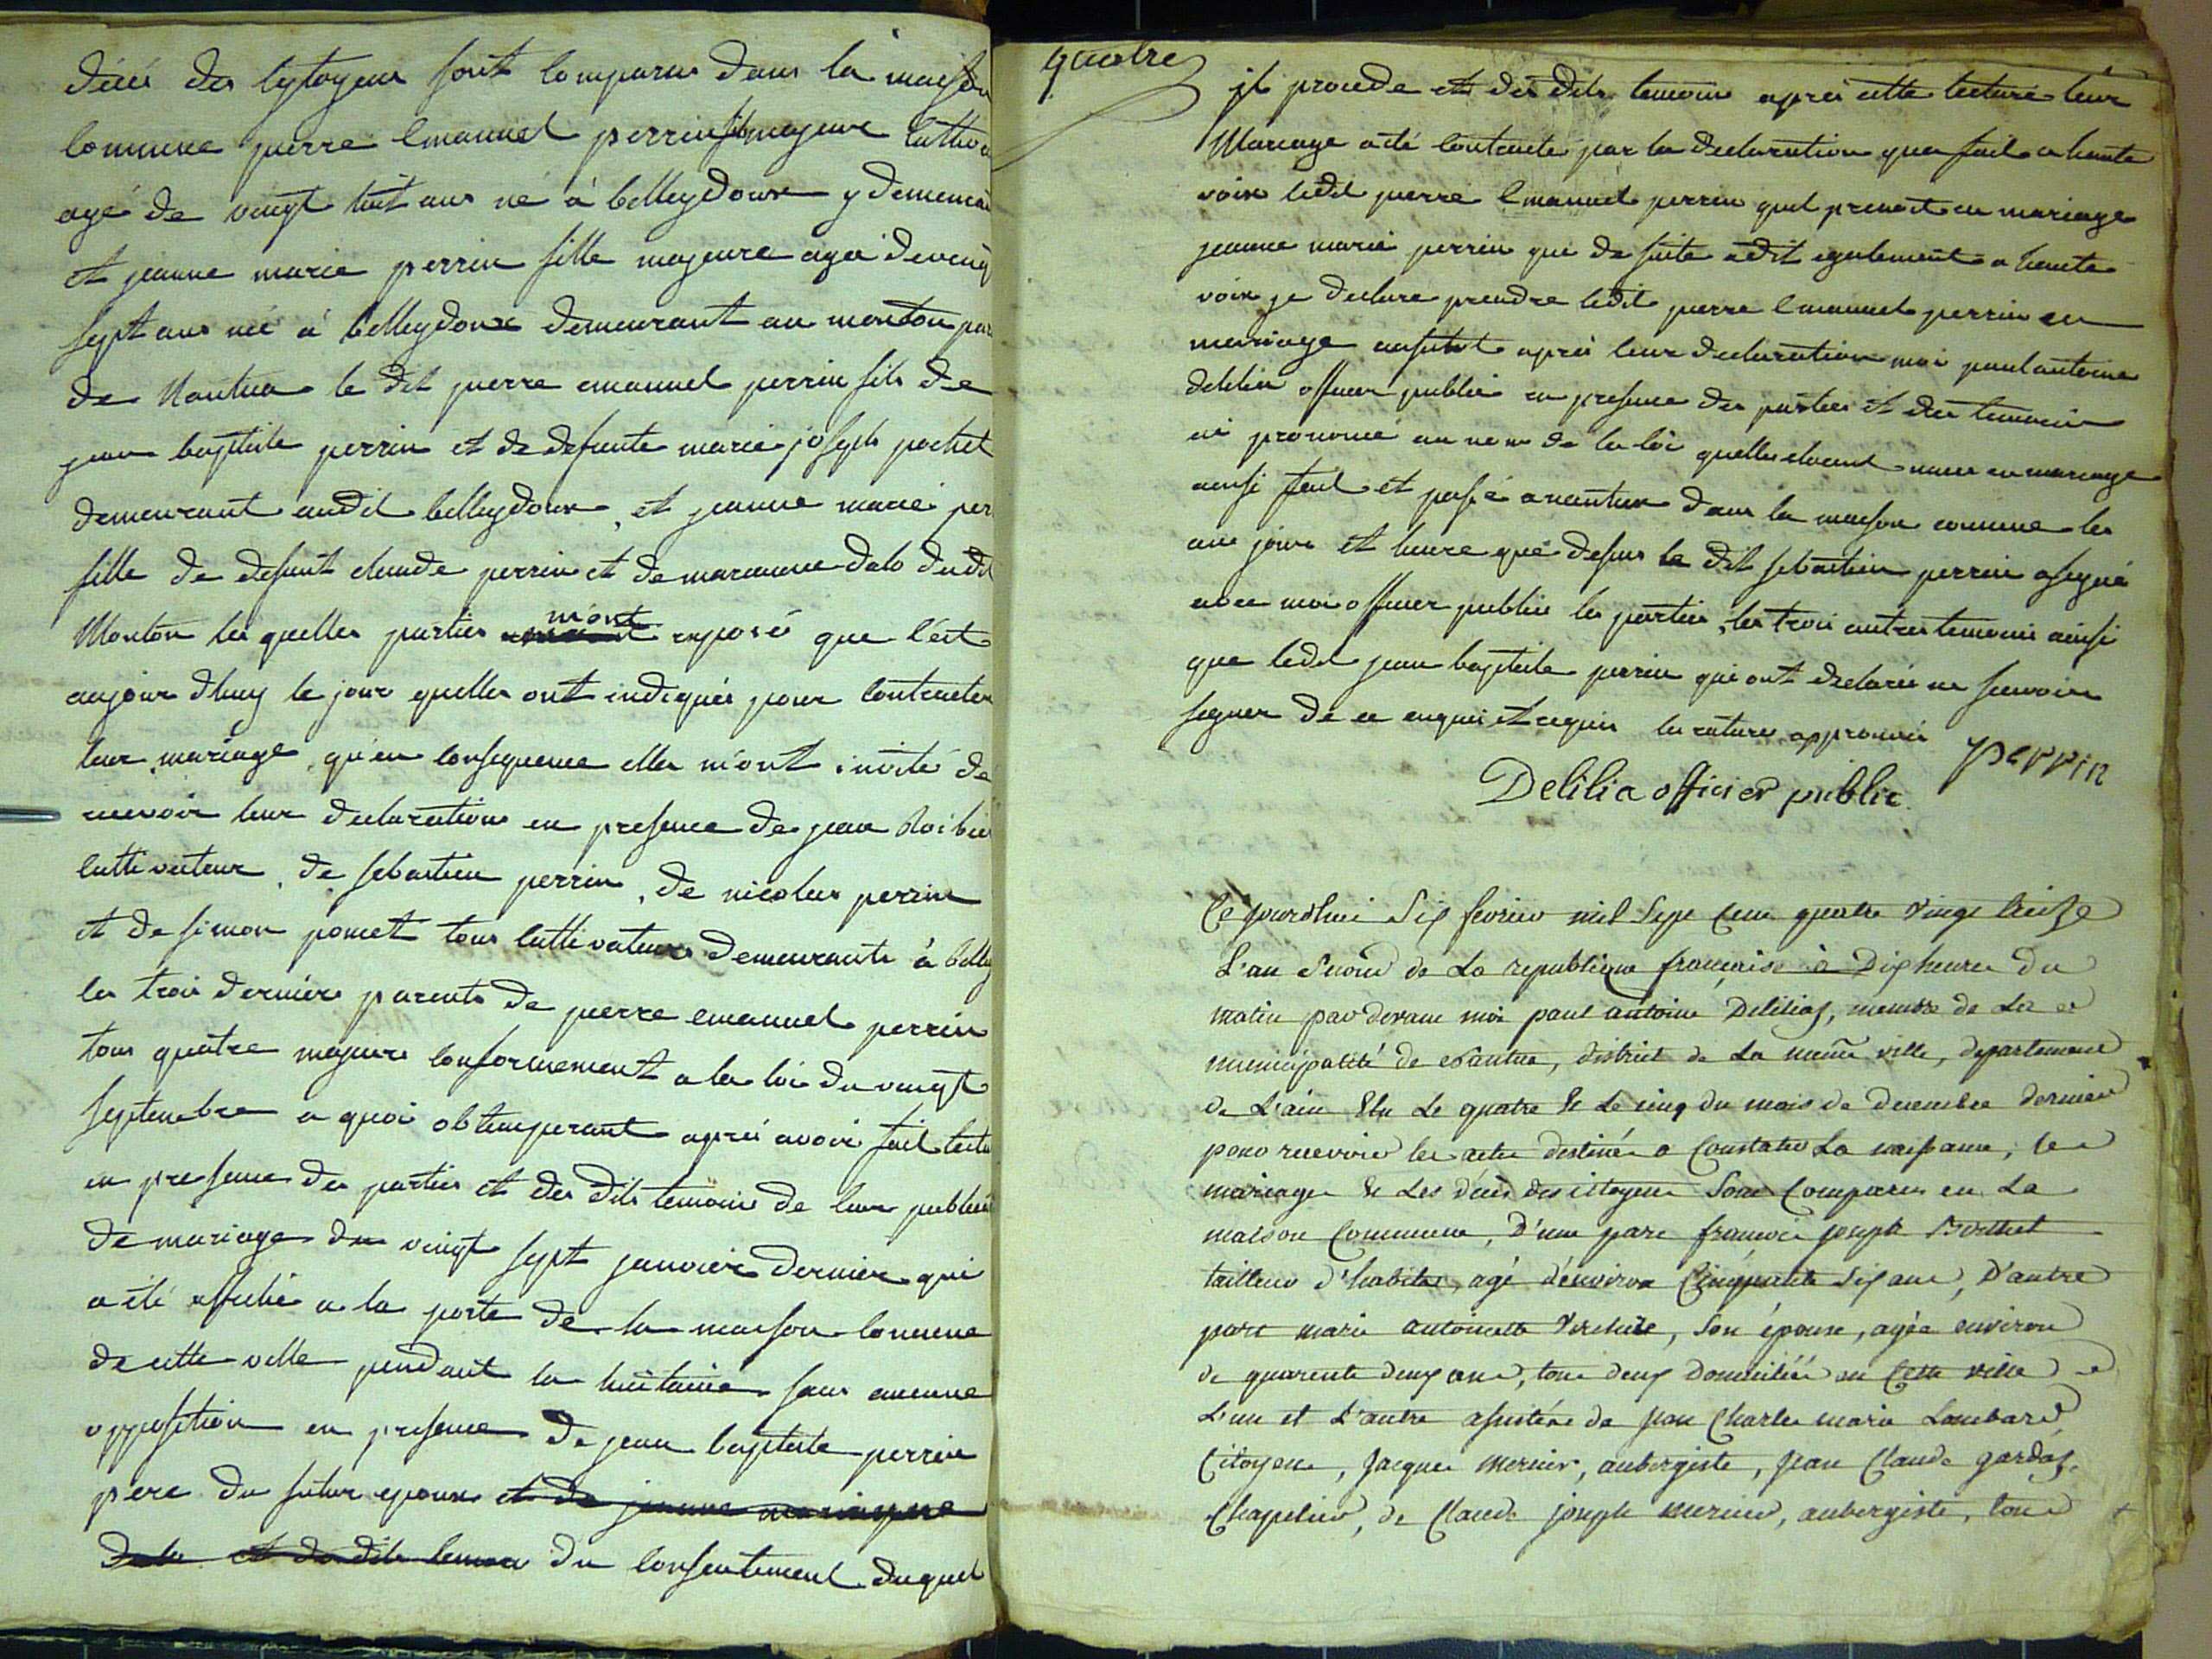 décés des Cytoyens sont Comparus dans la maison
Commune pierre Emanuel perrin fils majeur Cultiva
agé de vingt huit ans né à belleydoux y demeurant
et jeanne marie perrin fille majeure agée de vingt
sept ans née à belleydoux demeurant au monton par
de Nantua le dit pierre emanuel perrin fils de
jean baptiste perrin et de defunte marie joseph pochet
demeurant audit belleydoux, et jeanne marie per
fille de defunt claude perrin et de marianne dalo dudit
Monton les quelles parties mont exposé que C'est
aujour dhuy le jour quelles ont indiqués pour Contracter
leur mariage, qu'en Consequence elles m'ont invité de
recevoir leur declaration en presence de jean
Cultivateur, de sebastien perrin, de nicolas perrin
et de simon poncet tous Cultivateurs demeurants à belley
les trois derniers parents de pierre emanuel perrin
tous quatre majeurs Conformement a la loi du vingt
septembre a quoi obtemperant aprés avoir fait lectu
en presence des parties et des dits temoins de leur publicat
de mariage du vingt sept janvier dernier qui
a été affiché a la porte de la maison Commune
de cette ville pendant la huitaine sans aucune
opposition en presence de jean baptiste perrin
pere du futur epoux et de jeanne marie
dalo et des dits temoins du Consentement duquel
quatre
il procede et des dits temoins aprés cette lecture leur
Mariage a été Contracté par la declaration qua fait a haute
voix ledit pierre Emanuel perrin quil prenoit en mariage
jeanne marie perrin qui de suite a dit egalement a haute
voix je declare prendre ledit pierre Emanuel perrin en
mariage aussitot aprés leur declaration moi paul antoine
delilia officier public en presence des parties et des temoins
ai prononcé au nom de la loi quelles etoient unies en mariage
ainsi fait et passé a nantua dans la maison commune les
an jour et heure que dessus le dit sebastien perrin a signé
avec moi officier public les parties, les trois autres temoins ainsi
que ledit jean baptiste perrin qui ont declarés ne scavoir
signer de ce enquis et requis la rature approuvée perrin
Delilia officier public
Cejourdhui Six fevrier mil Sept Cent quatre vingt treize
L'an Second de La republique française à Dix heures Du
matin par devant moi paul antoine Delilia, membre de La
municipalité de Nantua, district de La même ville, departement
de L'ain Elu Le quatre & Le cinq du mois de Decembre dernier
pour recevoir les actes destinés a Constater La naissance, les
mariages & Les décès des citoyens Sont Comparus en La
maison Commune, D'une part françois joseph Borthet
tailleur d'habits, agé d'environ Cinquante Six ans, D'autre
part marie antoinette, Son épouse, agée environ
de quarente deux ans, tous deux Domiciliés en Cette ville
L'un et L'autre assistés de jean Charles marie Lombard
Citoyen, Jacques mercier, aubergiste, jean Claude gardaz
Chapelier, de Claude joseph mercier, aubergiste, tous